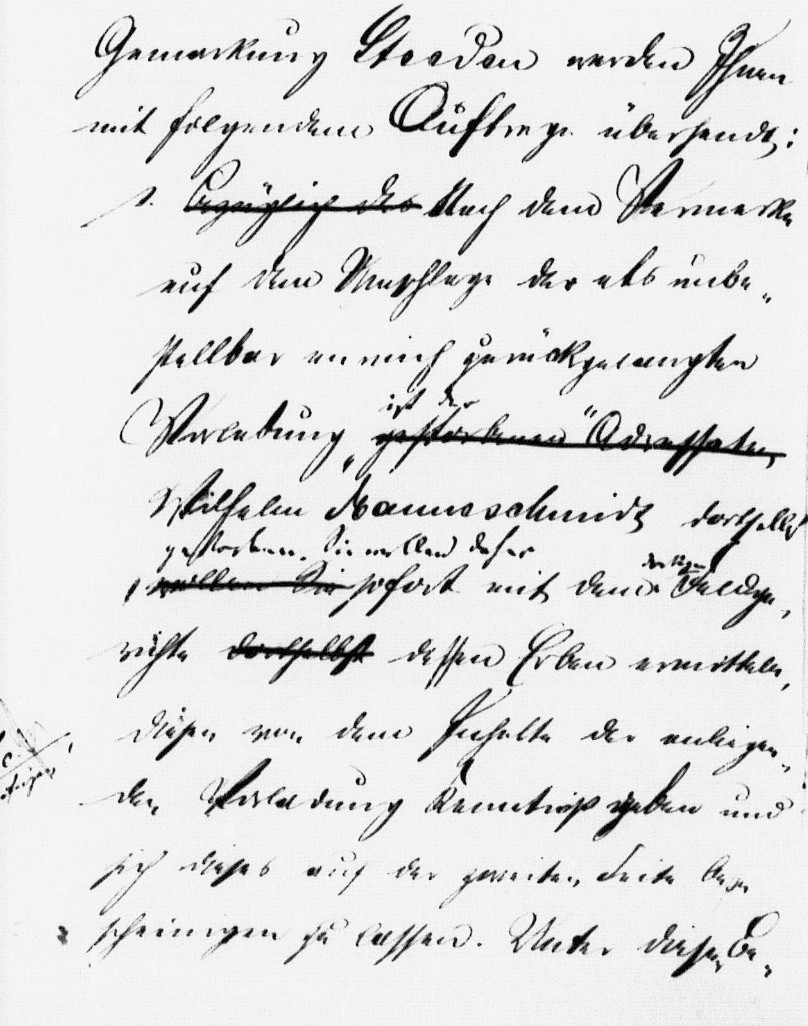 Gemarkung Steeden werden Ihnen
mit folgendem Auftrage übersendt:
1. Bezüglich des Nach dem Vermerke
auf dem Umschlage der als unbe„
stellbar an mich zurückgelangten
ist der
Vorladung „gestorbenen“ Adressaten,
Wilhelm Bannschmidt dortselbst
gestorben. Sie wollen daher
dortigen
wollen Sie sofort mit dem Feldge,
richte dortselbst dessen Erben ermitteln,
diesen von dem Inhalte der anliegen„
den Vorladung Kenntniß geben und
sich dieses auf der zweiten Seite be
scheinigen zu lassen. Unter dieser Be„